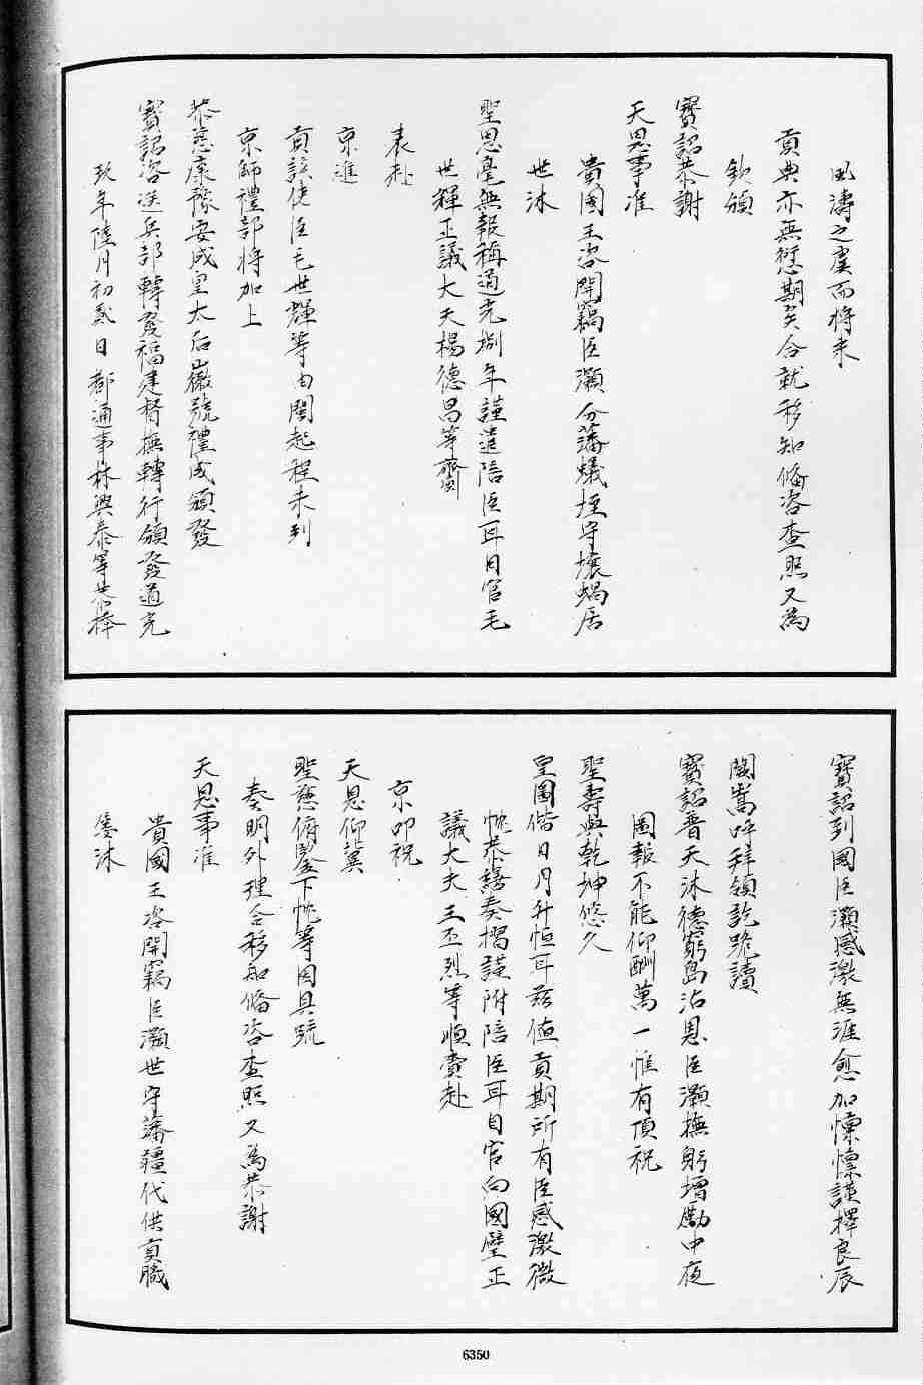 風濤之虞而將來
貢典亦無愆期矣合就移知備咨查照又為
欽頒
寶詔恭謝
天恩事准
貴國王咨開竊臣灝分藩蟻垤守壤蝸居
世沐
聖恩毫無報稱道光捌年謹遣陪臣耳目官毛
世輝正議大夫楊德昌等齎
表赴
京進
貢該使臣毛世輝等由閩起程未到
京師禮部將加上
恭慈康豫安成皇太后徽號禮成頒發
寶詔咨送兵部轉發福建督撫轉行頒發道光
玖年陸月初貳日都通事林興泰等恭捧
寶詔到國臣灝感激無涯愈加悚慄謹擇良辰
闕嵩呼拜領訖跪讀
寶詔普天沐德窮島沾恩臣灝撫躬增勵中夜
圖報不能仰酬萬一惟有頂祝
聖壽與乾坤悠久
皇圖偕日月升恒耳茲值貢期所有臣感激微
忱恭繕奏摺謹附陪臣耳目官向國璧正
議大夫王丕烈等順賫赴
京叩祝
天恩仰冀
聖慈俯鑒下忱等因具疏
奏明外理合移知備咨查照又為恭謝
天恩事准
貴國王咨開竊臣灝世守藩疆代供貢職
僂沐
6350